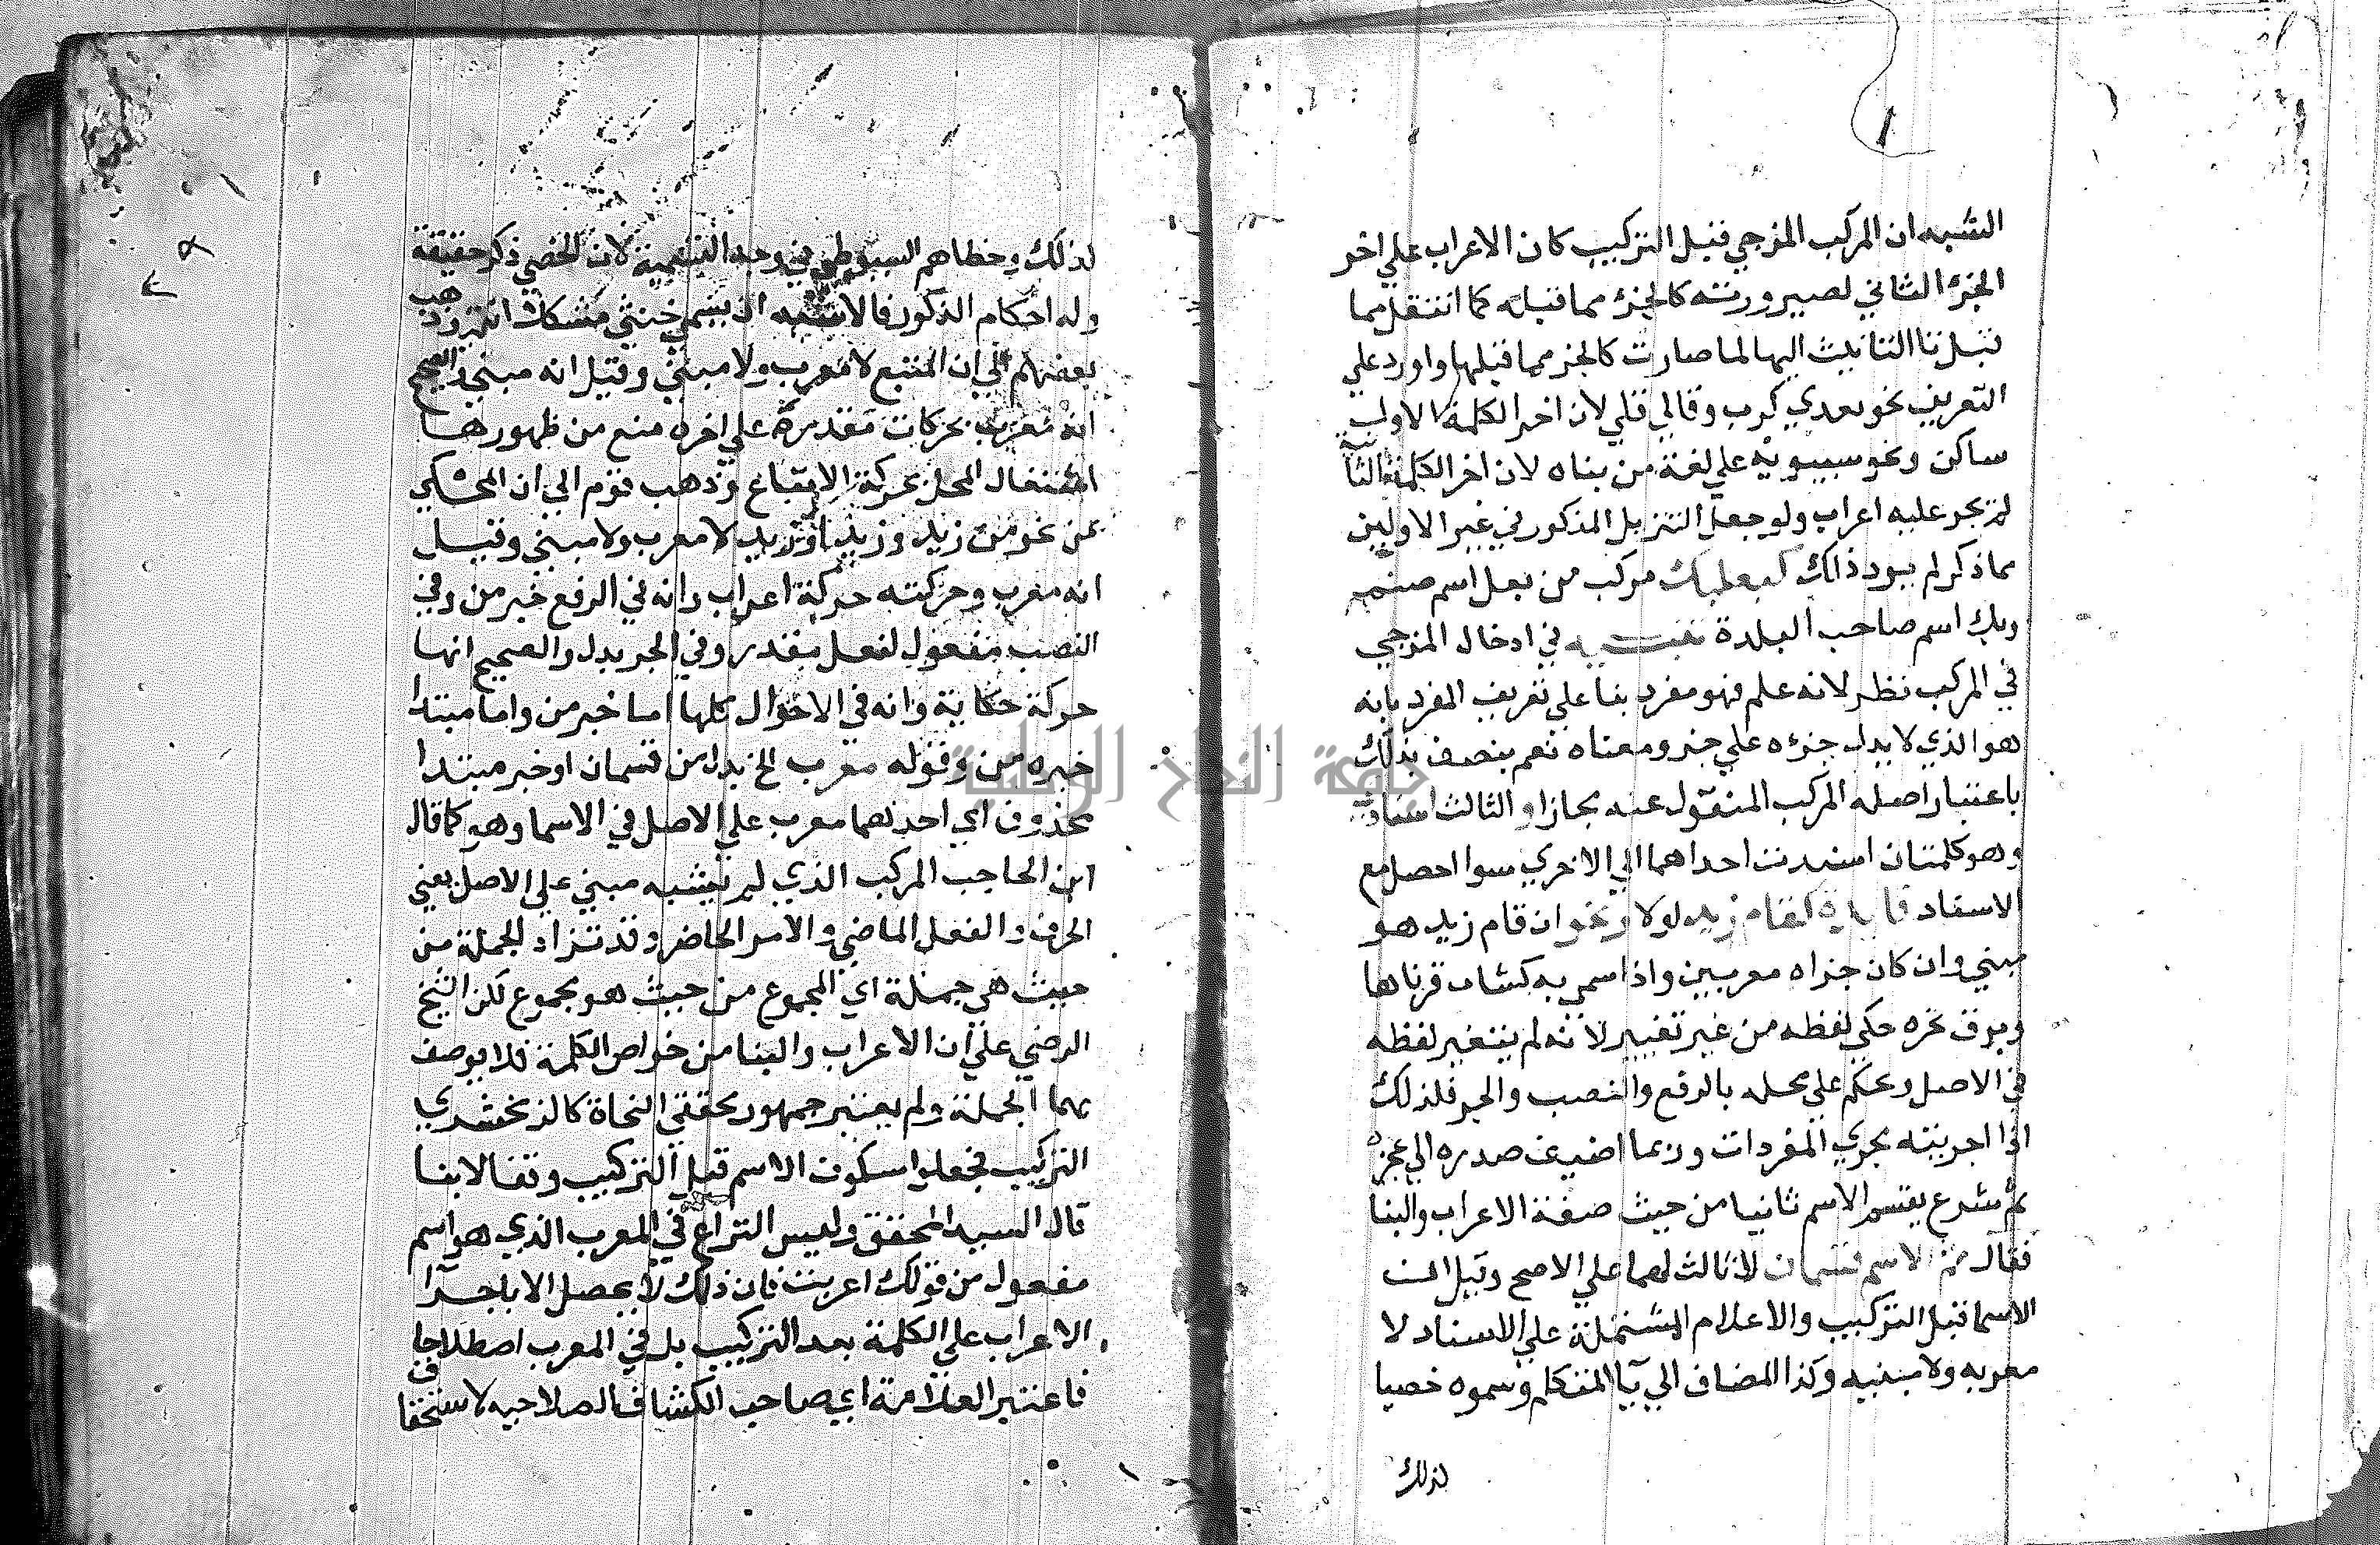 الشبه ان المركب المزجي قبل التركيب كان الاعراب علي اخر
الجزء الثاني لصيرورته كالجزء مما قبله كما انتقل مما
قبل تا التانيث اليها لما صارت كالجز مما قبلها واورد علي
التعريف نحو معدي كرب وقالي قلي لان اخر الكلمة الاولي
ساكن ونحو سيبويه علي لغة من بناه لان اخر الكلمة الثانية
لم يجر عليه اعراب ولو جعل التنزيل المذكور في غير الاولين
بما ذكر لم يرد ذلك كبعلبك مركب من بعل اسم صنم
وبك اسم صاحب البلدة تنبيه في ادخال المزجي
في المركب نظر لانه علم فهو مفرد بنا علي تعريف المفرد بانه
هو الذي لا يدل جزءه علي جزو معناه نعم يتصف بذلك
باعتبار اصله المركب المنقول عنه مجازا والثالث اسنادي
وهو كلمتان اسندت احداهما الي الاخري سوا حصل مع
الاسناد فايدة كقام زيد اولا ونحو ان قام زيد هو
مبني وان كان جزاه معربين واذا سمي به كشاب قرناها
وبرق نحره حكي لفظه من غير تغيير لانه لم يتغير لفظه
في الاصل وحكم علي محله بالرفع والنصب والجر فلذلك
اذا اجريته مجري المفردات وربما اضيف صدره الي عجزه
ثم شرع يقسم الاسم ثانيا من حيث صفة الاعراب والبنا
فقال ثم الاسم قسمان لا ثالث لهما علي الاصح وقيل ان
الاسما قبل التركيب والاعلام المشتملة علي الاسناد لا
معربه ولا مبنيه وكذا المضاف الي يآ المتكلم وسموه خصيا
لذلك
لذلك وخطاهم السيوطي في وجه التسمية لان الخصي ذكر حقيقة
وله احكام الذكور فالاشبه ان يسمي خنثي مشكلا انتهي وذهب
بعضهم الي ان المتبع لا معرب ولا مبني وقيل انه مبني والصحيح
انه معرب بحركات مقدرة علي اخره منع من ظهورها
اشتغال المحل بحركة الاتباع وذهب قوم الي ان المحكي
بمن نحو من زيد وزيدا وزيد لا معرب ولا مبني وقيل
انه معرب وحركته حركة اعراب وانه في الرفع خبر من وفي
النصب مفعول لفعل مقدر وفي الجر بدل والصحيح انها
حركة حكاية وانه في الاحوال كلها اما خبر من واما مبتدا
خبره من وقوله معرب الخ بدل من قسمان او خبر مبتدا
محذوف اي احدهما معرب علي الاصل في الاسما وهو كما قال
ابن الحاجب المركب الذي لم يشبه مبني علي الاصل يعني
الحرف والفعل الماضي والامر الحاضر وقد تزاد الجملة من
حيث هي جملة اي المجموع من حيث هو مجموع لكن الشيخ
الرضي علي ان الاعراب والبنا من خواص الكلمة فلا يوصف
بهما الجملة ولم يعتبر جمهور محققي النحاة كالزمخشري
التركيب فجعلوا سكون الاسم قبل التركيب وقفا لا بنا
قال السيد المحقق وليس النزاع في المعرب الذي هو اسم
مفعول من قولك اعربت فان ذلك لا يحصل الا باجرا
الاعراب علي الكلمة بعد التركيب بل في المعرب اصطلاحا
فاعتبر العلامة اي صاحب الكشاف الصلاحيه لاستحقاق
جامعة النجاح الوطنية